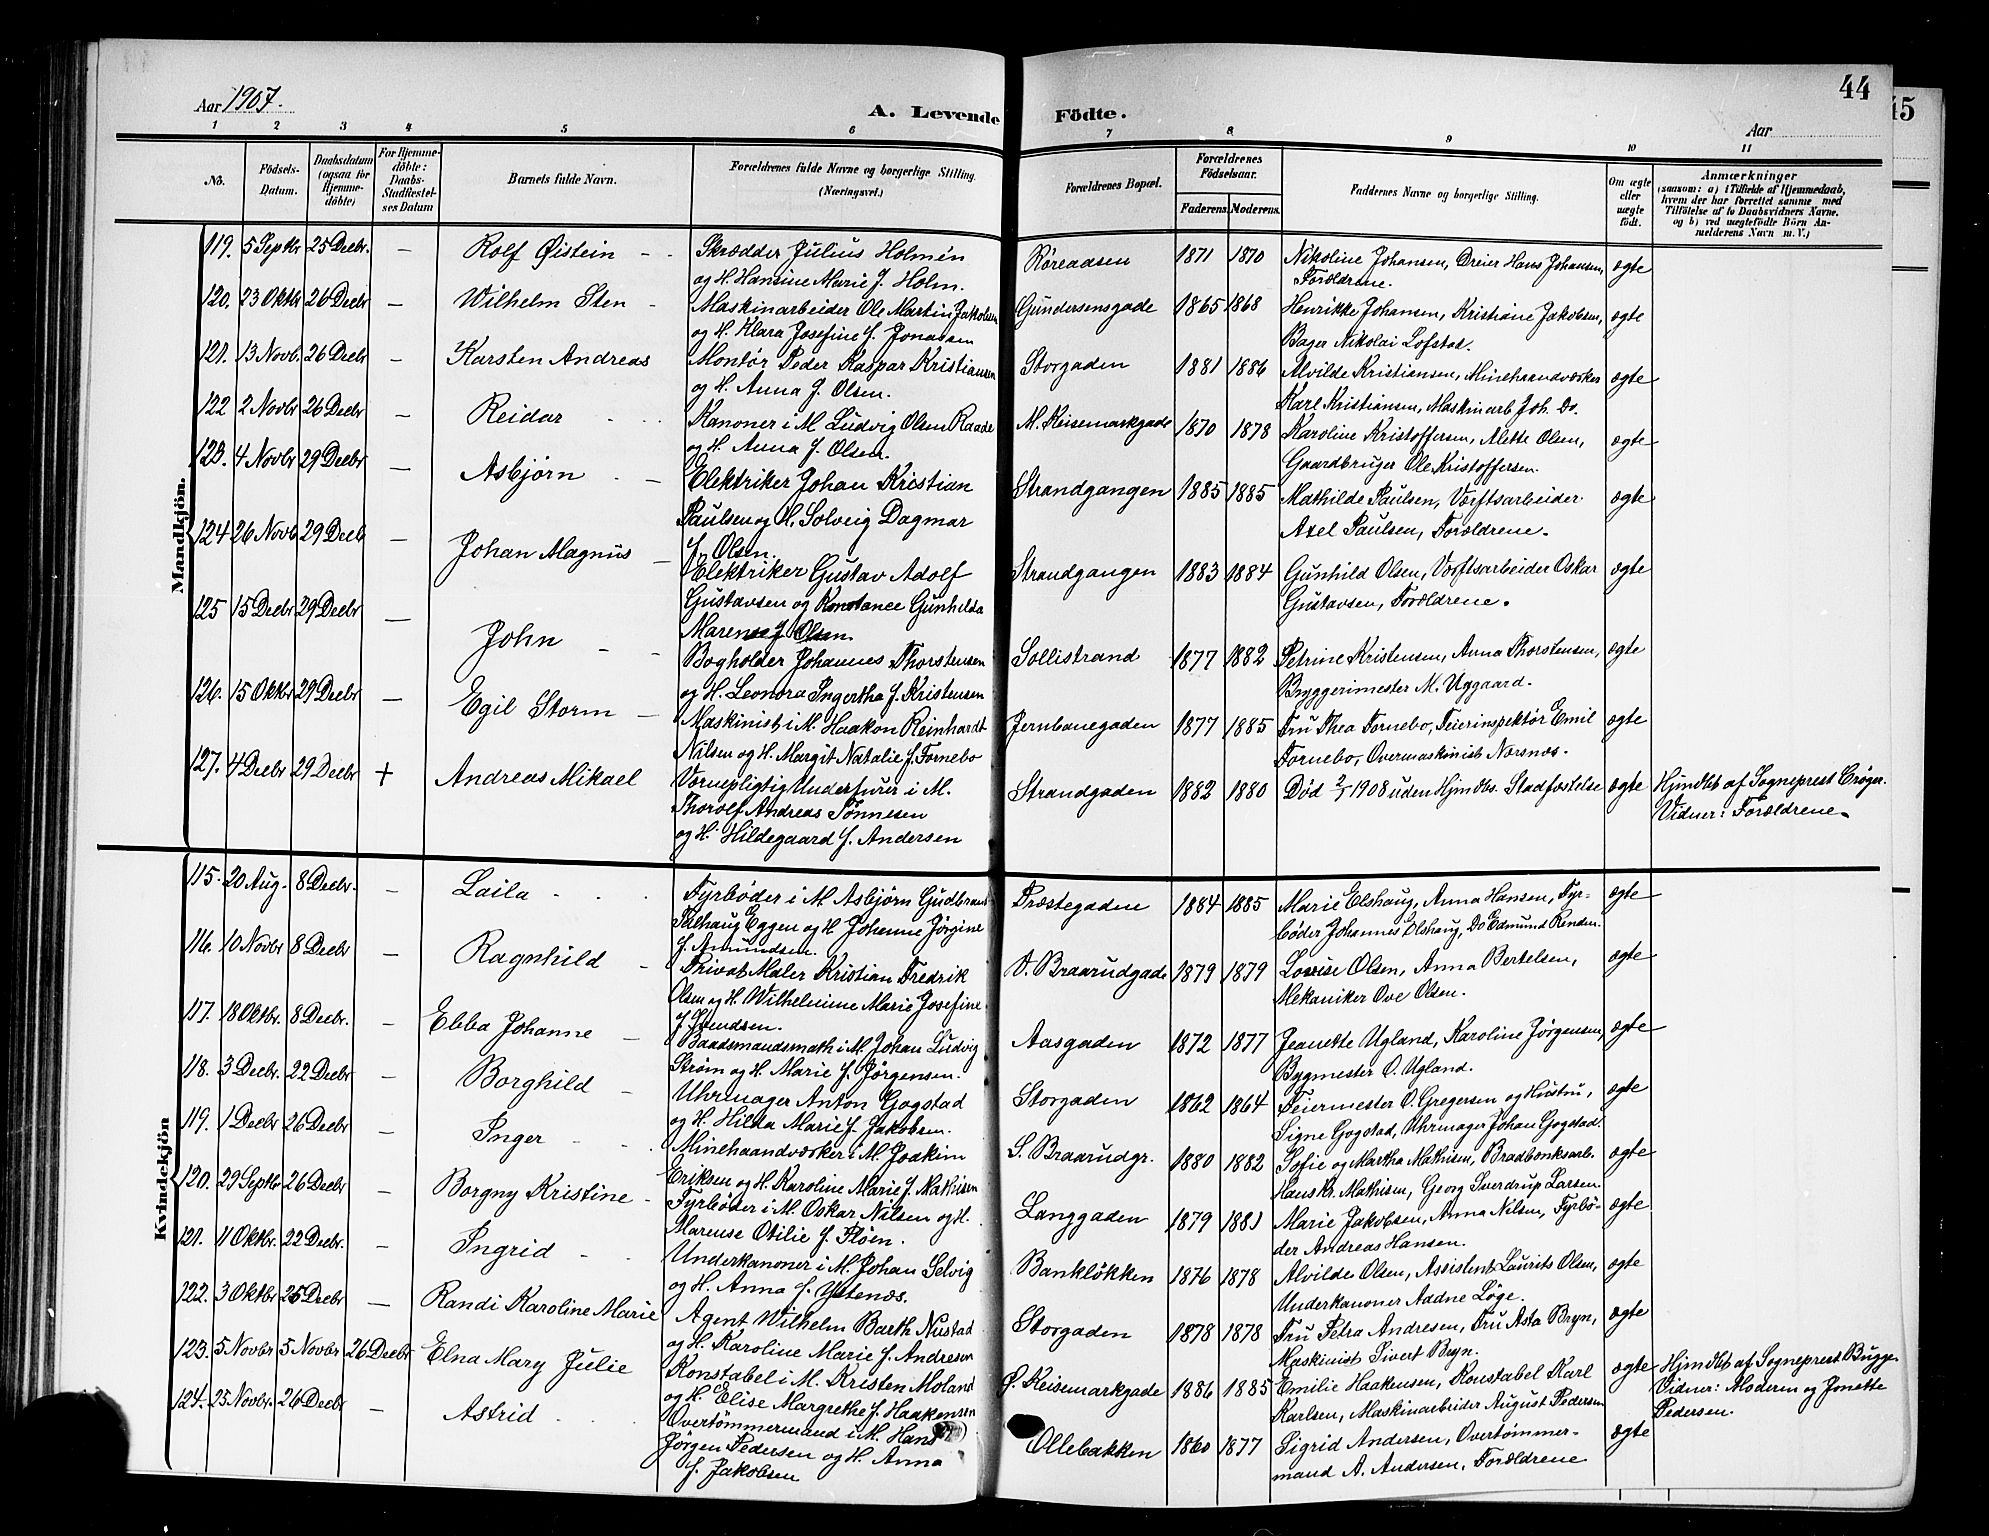 44
45
Aar 1907.
A. Levende Födte.
Aar
1 2 3 4 5 6 7 8 9 10 11
No.
Födsels-Datum.
Daabsdatum (ogsaa for Hjemmedöbte)
For Hjemmedöbte: Daabs-Stadfæstelses Datum
Barnets fulde Navn.
Forældrenes fulde Navne og borgerlige Stilling.
(Næringsvei.)
Forældrenes Bopæl.
Forældrenes Födselsaar.
Faderens. Moderens.
Faddernes Navne og borgerlige Stilling.
Om ægte eller uægte födt.
Anmærkninger
(saasom: a) i Tilfælde af Hjemmedaab,
hvem der har forrettet samme, med
Tilföielse af to Daabsvidners Navne,
og b) ved uægtefödte Börn An-
melderens Navn m. V.)
Mandkjön.
119. 5 Septbr 25 Decbr. — Rolf Øistein - - Skrædder Julius Holmén Røreaasen 1871 1870 Nikoline Johansen, Dreier Hans Johansen, ægte
og H. Hansine Marie f. Holm. Forældrene.
120. 23 Oktbr 26 Decbr — Wilhelm Sten - Maskinarbeider Ole Martin Jakobsen Gundersensgade 1865 1868 Henrikke Johansen, Kristiane Jakobsen, ægte
og H. Klara Josefine f. Jonassen Bager Nikolai Lofstad.
121. 13 Novb. 26 Decbr — Karsten Andreas Montør Peder Kaspar Kristiansen Storgaden 1881 1886 Alvilde Kristiansen, Minehaandværker ægte
og H. Anna f. Olsen. Karl Kristiansen, Maskinarb Joh. Do.
122 2 Novbr 26 Decbr — Reidar - - - Kanoner i M Ludvig Olsen Raade M. Keisemarkgade 1870 1878 Karoline Kristoffersen, Alette Olsen, ægte
og H. Anna f. Olsen. Gaardbruger Ole Kristoffersen.
123. 4 Novbr 29 Decbr — Asbjørn - - Elektriker Johan Kristian Strandgangen 1885 1885 Mathilde Paulsen, Værftsarbeider ægte
Paulsen og H. Solveig Dagmar Axel Paulsen, Forældrene.
f. Olsen.
124 26 Novb 29 Decb — Johan Magnus - Elektriker Gustav Adolf Strandgangen 1883 1884 Gunhild Olsen, Værftsarbeider Oskar ægte
Gustavsen og Konstance Gunhilda Gustavsen, Forældrene.
Marense f Olsen.
125 15 Decbr 29 Decbr — John - - Bogholder Johannes Thorstensen Sollistrand 1877 1882 Petrine Kristensen, Anna Thorstensen, ægte
og H. Leonora Ingertha f. Kristensen Bryggerimester M. Uggaard.
126. 15 Oktbr 29 Decbr — Egil Storm - Maskinist i M. Haakon Reinhardt Jernbanegaden 1877 1885 Fru Thea Fornebo, Feierinspektör Emil ægte
Nilsen og H. Margit Natalie f. Fornebo Fornebo, Overmaskinist Narsnæs.
127. 4 Decbr 29 Decbr + Andreas Mikael Vernepligtig Underfurer i M. Strandgaden 1882 1880 Död 2/5 1908 uden Hjmdbs. Stadfæstelse ægte Hjmdbt af Sogneprest Crøger.
Thorolf Andreas Tönnesen Vidner: Forældrene.
og H. Hildegaard f. Andersen
Kvindekjön
115. 20 Aug. 8 Decbr. — Laila - - - Fyrbøder i M Asbjørn Gudbrand Præstegaden 1884 1885 Marie Elshaug, Anna Hansen, Fyr- ægte
Fælhaug Eggen og H. Johanne Jørgine bøder Johannes Elshaug, Do Edmund Renden.
f. Amundsen.
116. 10 Novbr 8 Decbr — Ragnhild - Privat Maler Kristian Fredrik V. Braarudgade 1879 1879 Lovise Olsen, Anna Bertelsen, ægte
Olsen og H. Wilhelmine Marie Josefine Mekaniker Ove Olsen.
f. Svendsen.
117. 18 Oktbr. 8 Decbr. — Ebba Johanne - Baadsmandsmath i M. Johan Ludvig Aasgaden 1872 1877 Jeanette Ugland, Karoline Jørgensen, ægte
Strøm og H. Marie f. Jørgensen. Bygmester O. Ugland.
118. 3 Decbr. 22 Decbr — Borghild - Uhrmager Anton Gogstad Storgaden 1862 1864 Feiermester O. Gregersen og Hustru, ægte
og H. Hilda Marie f. Jakobsen. Signe Gogstad, Uhrmager Johan Gogstad.
119. 1 Decbr 26 Decbr — Inger - - Minehaandværker i M. Joakim S. Braarudgr. 1880 1882 Sofie og Martha Mathisen, Bradbænksarb. ægte
Eriksen og H. Karoline Marie f. Mathisen Hans Kr. Mathisen, Georg Sverdrup Larsen.
120. 29 Septbr 26 Decbr — Borgny Kristine - Fyrbøder i M. Oskar Nilsen og H. Langgaden 1879 1881 Marie Jakobsen, Anna Nilsen, Fyrbö- ægte
Marense Otilie f. Fløen. der Andreas Hansen.
121. 11 Oktbr. 22 Decbr. — Ingrid - - Underkanoner i M. Johan Selvig Bankløkken 1876 1878 Alvilde Olsen, Assistent Laurits Olsen, ægte
og H. Anna f. Ystenæs. Underkanoner Aadne Løge.
122. 3 Oktbr 25 Decbr — Randi Karoline Marie Agent Wilhelm Barth Nustad Storgaden 1878 1878 Fru Petra Andresen, Fru Asta Bryn, ægte
og H. Karoline Marie f. Andresen Maskinist Sivert Bryn.
123. 5 Novbr 5 Novbr 26 Decbr Elna Mary Julie Konstabel i M. Kristen Moland Ø. Keisemarkgade 1886 1885 Emilie Haakensen, Konstabel Karl ægte Hjmdbt af Sogneprest Bugge.
og H. Elise Margrethe f. Haakensen Karlsen, Maskinarbeider August Pedersen Vidner: Moderen og Jonette
Pedersen.
124. 25 Novbr. 26 Decbr — Astrid - - - Overtømmermand i M. Hans Ollebakken 1860 1877 Sigrid Andersen, Overtömmer- ægte
Jørgen Pedersen og H. Anna mand A. Andersen, Forældrene
f. Jakobsen